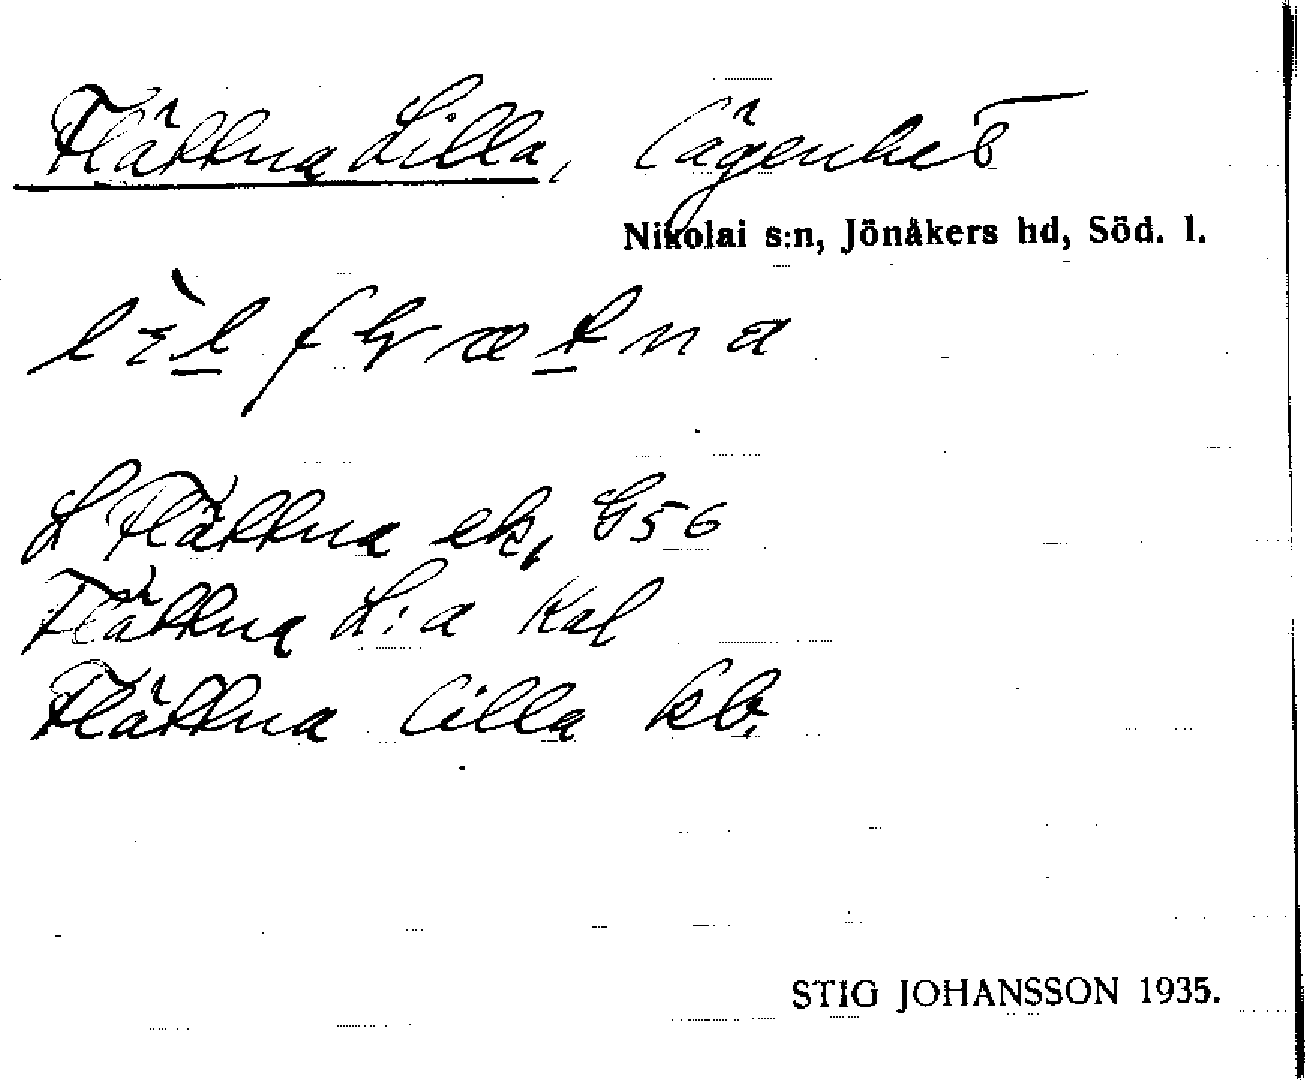 Flättna Lilla, lägenhet
Nikolai s:n, Jönåkers hd, Söd. l.
L Flättna ek, G56
Flättna L:a Kal
Flättna lilla kb.
STIG JOHANSSON 1935.